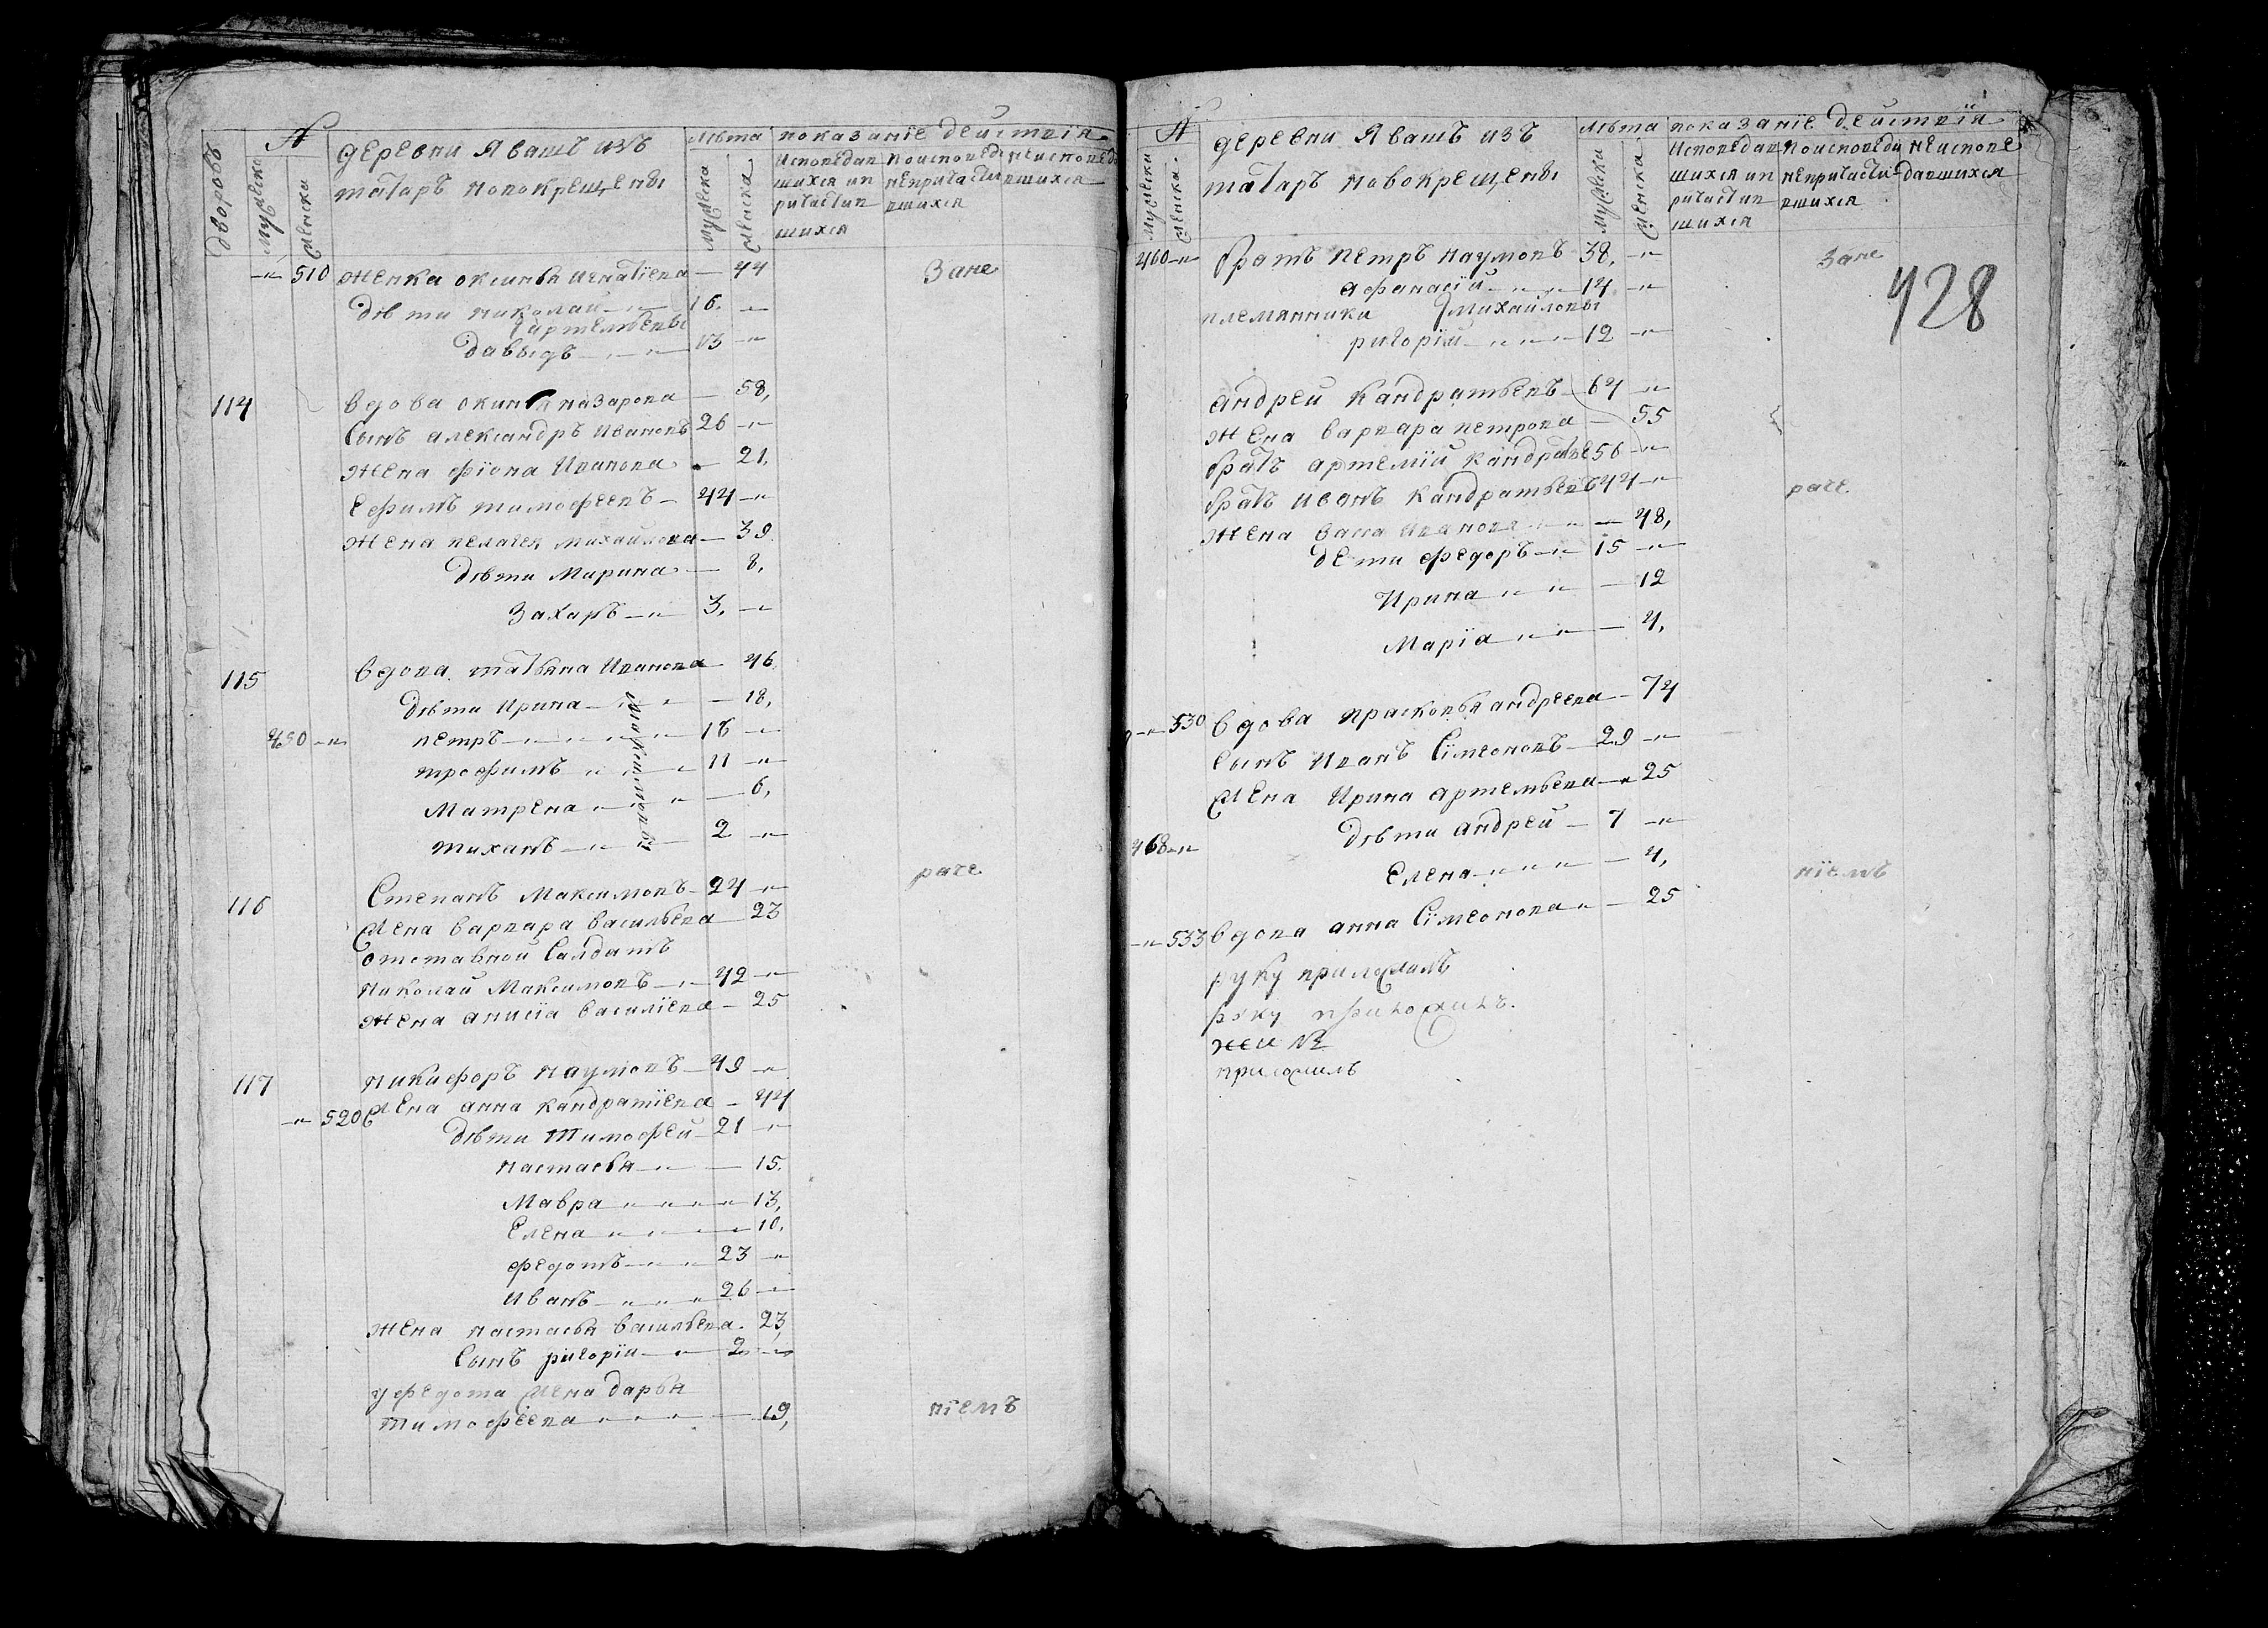 №
дворовъ
мужеска
женска
деревни Явашъ изъ
татаръ новокрещены
лѣта
мужеска
женска
показанїе дѣиствїя
Исповедав
шихся ип
ричастив
шихся
поисповеди
непричасти
вшихся
неисповеда
вшихся
-"- 510 женка оксинья игнатїева — 44 Зане
дѣти николай 16. -"-
артемьевы
давыдъ 13 -"-
114 вдова окинья назарова — 58,
сынъ александръ Ивановъ 26 -"-
жена фїона Иванова — 21,
ефимъ тимофеевъ — 44 -"-
жена пелагея михаилова — 39
дѣти Марина — 8,
Захаръ 3, -"-
115 вдова татьяна Иванова 46
дѣти Ирина — 18,
450 -"- петръ 16 -"-
трофимъ 11 -"-
Матрена — 6,
тиханъ 2 -"-
116 Степанъ Максимовъ 24 -"- раче
жена варвара васильева — 23
отставной Салдатъ
николаи Максимовъ 42 -"-
жена анисїа василїева — 25
117 никифоръ наумовъ 49 -"-
-"- 520 жена анна кандратїева — 44
дѣти тимофеи 21 -"-
настасья — 15.
Мавра — 13,
Елена — 10,
федотъ 23 -"-
иванъ 26 -"-
жена настасья васильева. 23,
сынъ ригорїи 2 -"-
у федота жена дарья
тимофеева — 19, нїемъ
№
мужеска
женска
деревни Явашъ изъ
татаръ новокрещены
лѣта
мужеска
женска
показанїе деиствїя
Исповедав
шихся ип
ричастив
шихся
поисповеди
непричасти
вшихся
неиспове
давшихся
460 -"- братъ петръ наумовъ 38, -"- Зане
428
афанасїй 14 -"-
племянники михаиловы
ригорїй 12 -"-
андреи кандратьевъ 64 -"-
жена варвара петрова — 55
братъ артемїй кандратье 56 -"-
братъ иванъ кандратьевъ 44 -"- раче.
жена васса Иванова — 48,
дети федоръ 15 -"-
Ирина — 12
Марїа — 4,
-"- 530 вдова прасковья андреева — 74
сынъ Иванъ Сїмеоновъ 29 -"-
жена Ирина артемьева 25
468 -"- дѣти андрей — 7 -"-
Елена — 4, нїемъ
-"- 533 вдова анна Сїмеонова — 25
руку приложилъ
руку приложилъ.
приложилъ